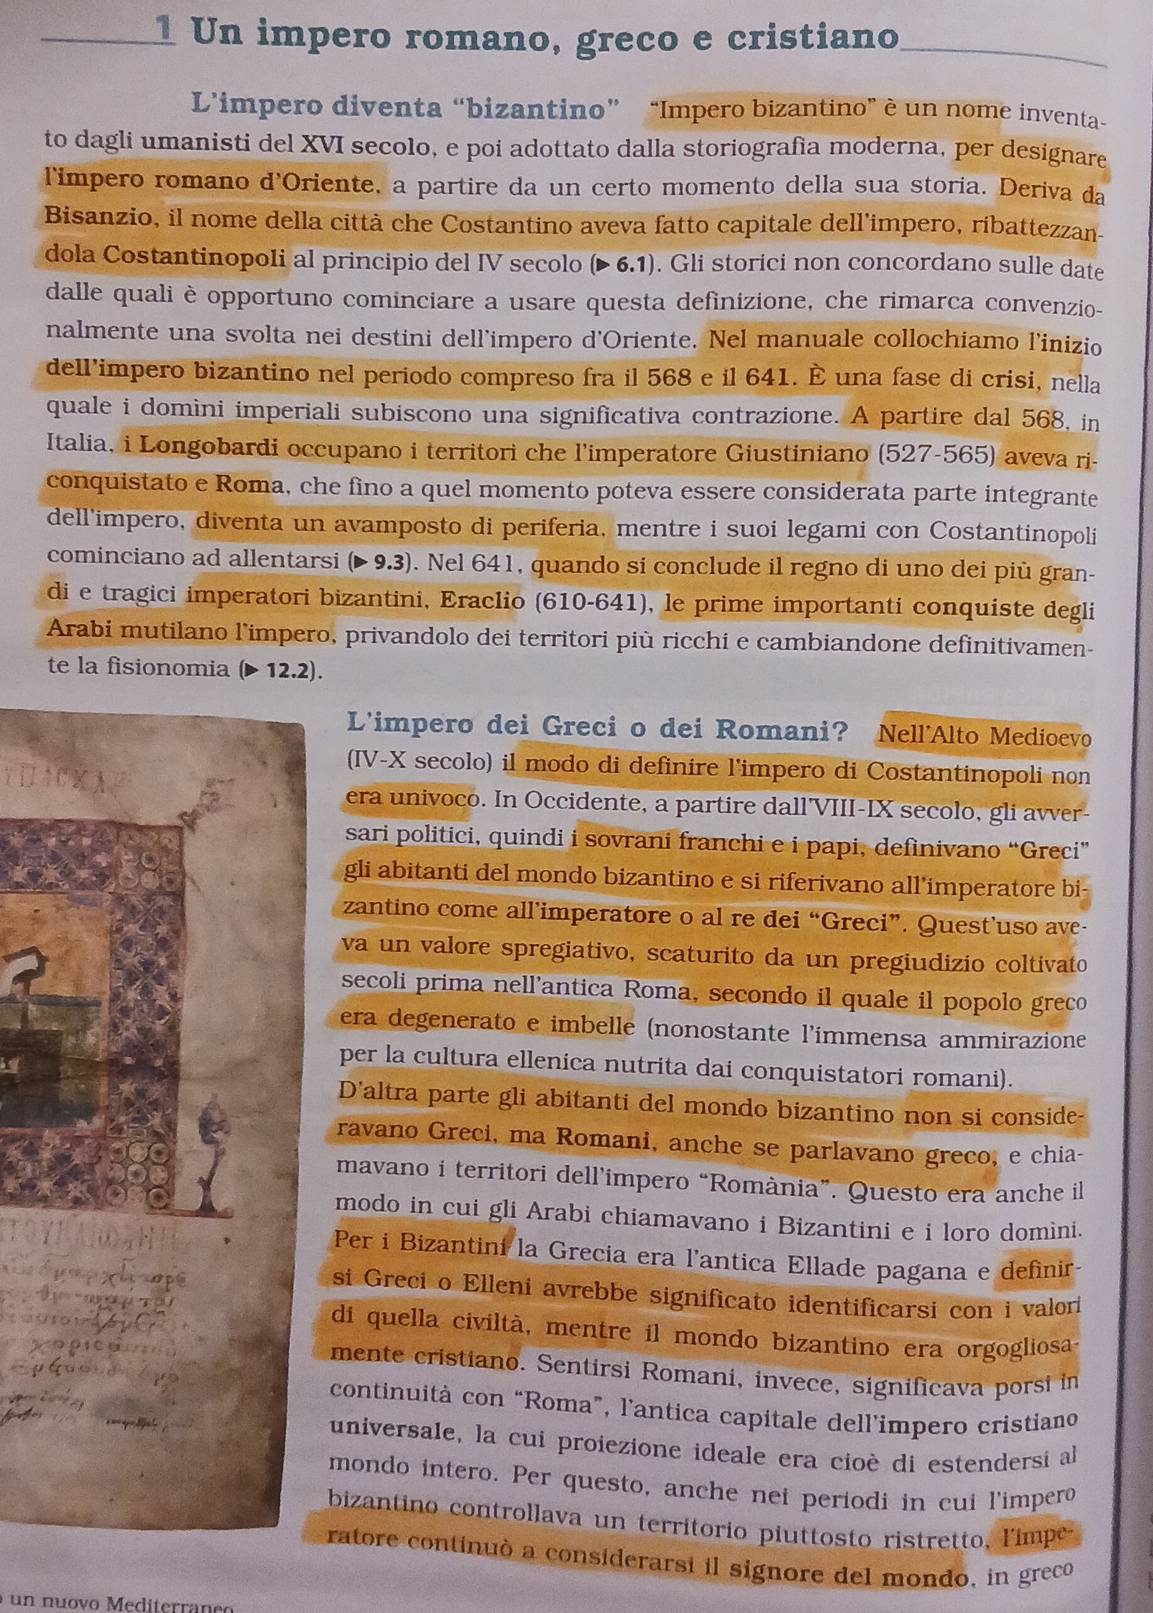 1 Un impero romano, greco e cristiano
L'impero diventa “bizantino” “Impero bizantino” è un nome inventa-
to dagli umanisti del XVI secolo, e poi adottato dalla storiografia moderna, per designare
l'impero romano d'Oriente, a partire da un certo momento della sua storia. Deriva da
Bisanzio, il nome della città che Costantino aveva fatto capitale dell'impero, ribattezzan-
dola Costantinopoli al principio del IV secolo (▶ 6.1). Gli storici non concordano sulle date
dalle quali è opportuno cominciare a usare questa definizione, che rimarca convenzio-
nalmente una svolta nei destini dell'impero d'Oriente. Nel manuale collochiamo l'inizio
dell'impero bizantino nel periodo compreso fra il 568 e il 641. È una fase di crisi, nella
quale i domìni imperiali subiscono una significativa contrazione. A partire dal 568, in
Italia, i Longobardi occupano i territori che l'imperatore Giustiniano (527-565) aveva ri-
conquistato e Roma, che fino a quel momento poteva essere considerata parte integrante
dell'impero, diventa un avamposto di periferia, mentre i suoi legami con Costantinopoli
cominciano ad allentarsi (▶ 9.3). Nel 641, quando si conclude il regno di uno dei più gran-
di e tragici imperatori bizantini, Eraclio (610-641), le prime importanti conquiste degli
Arabi mutilano l'impero, privandolo dei territori più ricchi e cambiandone definitivamen-
te la fisionomia (▶ 12.2).
L'impero dei Greci o dei Romani? Nell'Alto Medioevo
(IV-X secolo) il modo di definire l'impero di Costantinopoli non
era univoco. In Occidente, a partire dall'VIII-IX secolo, gli avver-
sari politici, quindi i sovrani franchi e i papi, definivano “Greci”
gli abitanti del mondo bizantino e si riferivano all'imperatore bi-
zantino come all'imperatore o al re dei “Greci”. Quest'uso ave-
va un valore spregiativo, scaturito da un pregiudizio coltivato
secoli prima nell'antica Roma, secondo il quale il popolo greco
era degenerato e imbelle (nonostante l'immensa ammirazione
per la cultura ellenica nutrita dai conquistatori romani).
D'altra parte gli abitanti del mondo bizantino non si conside-
ravano Greci, ma Romani, anche se parlavano greco, e chia-
mavano i territori dell'impero “Romània”. Questo era anche il
modo in cui gli Arabi chiamavano i Bizantini e i loro domìni.
Per i Bizantini la Grecia era l'antica Ellade pagana e definir-
si Greci o Elleni avrebbe significato identificarsi con i valori
di quella civiltà, mentre il mondo bizantino era orgogliosa-
mente cristiano. Sentirsi Romani, invece, significava porsi in
continuità con “Roma”, l'antica capitale dell'impero cristiano
universale, la cui proiezione ideale era cioè di estendersi al
mondo intero. Per questo, anche nei periodi in cui l'impero
bizantino controllava un territorio piuttosto ristretto, l'impe-
ratore continuò a considerarsi il signore del mondo, in greco
un nuovo Mediterraneo